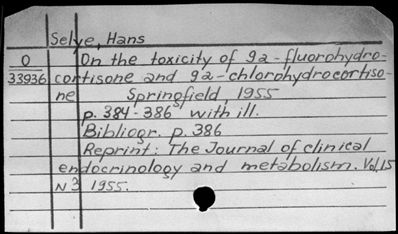 Selye, Hans
O On the toxicity of 9a-fluorohydro-
33936 cortisone and 9a-chlorohydrocortiso-
ne Springfield, 1955
p. 384-386 with ill.
Bibliogr. p. 386
Reprint: The Journal of clinical
endocrinology and metabolism. Vol, 15
N 3 1955.